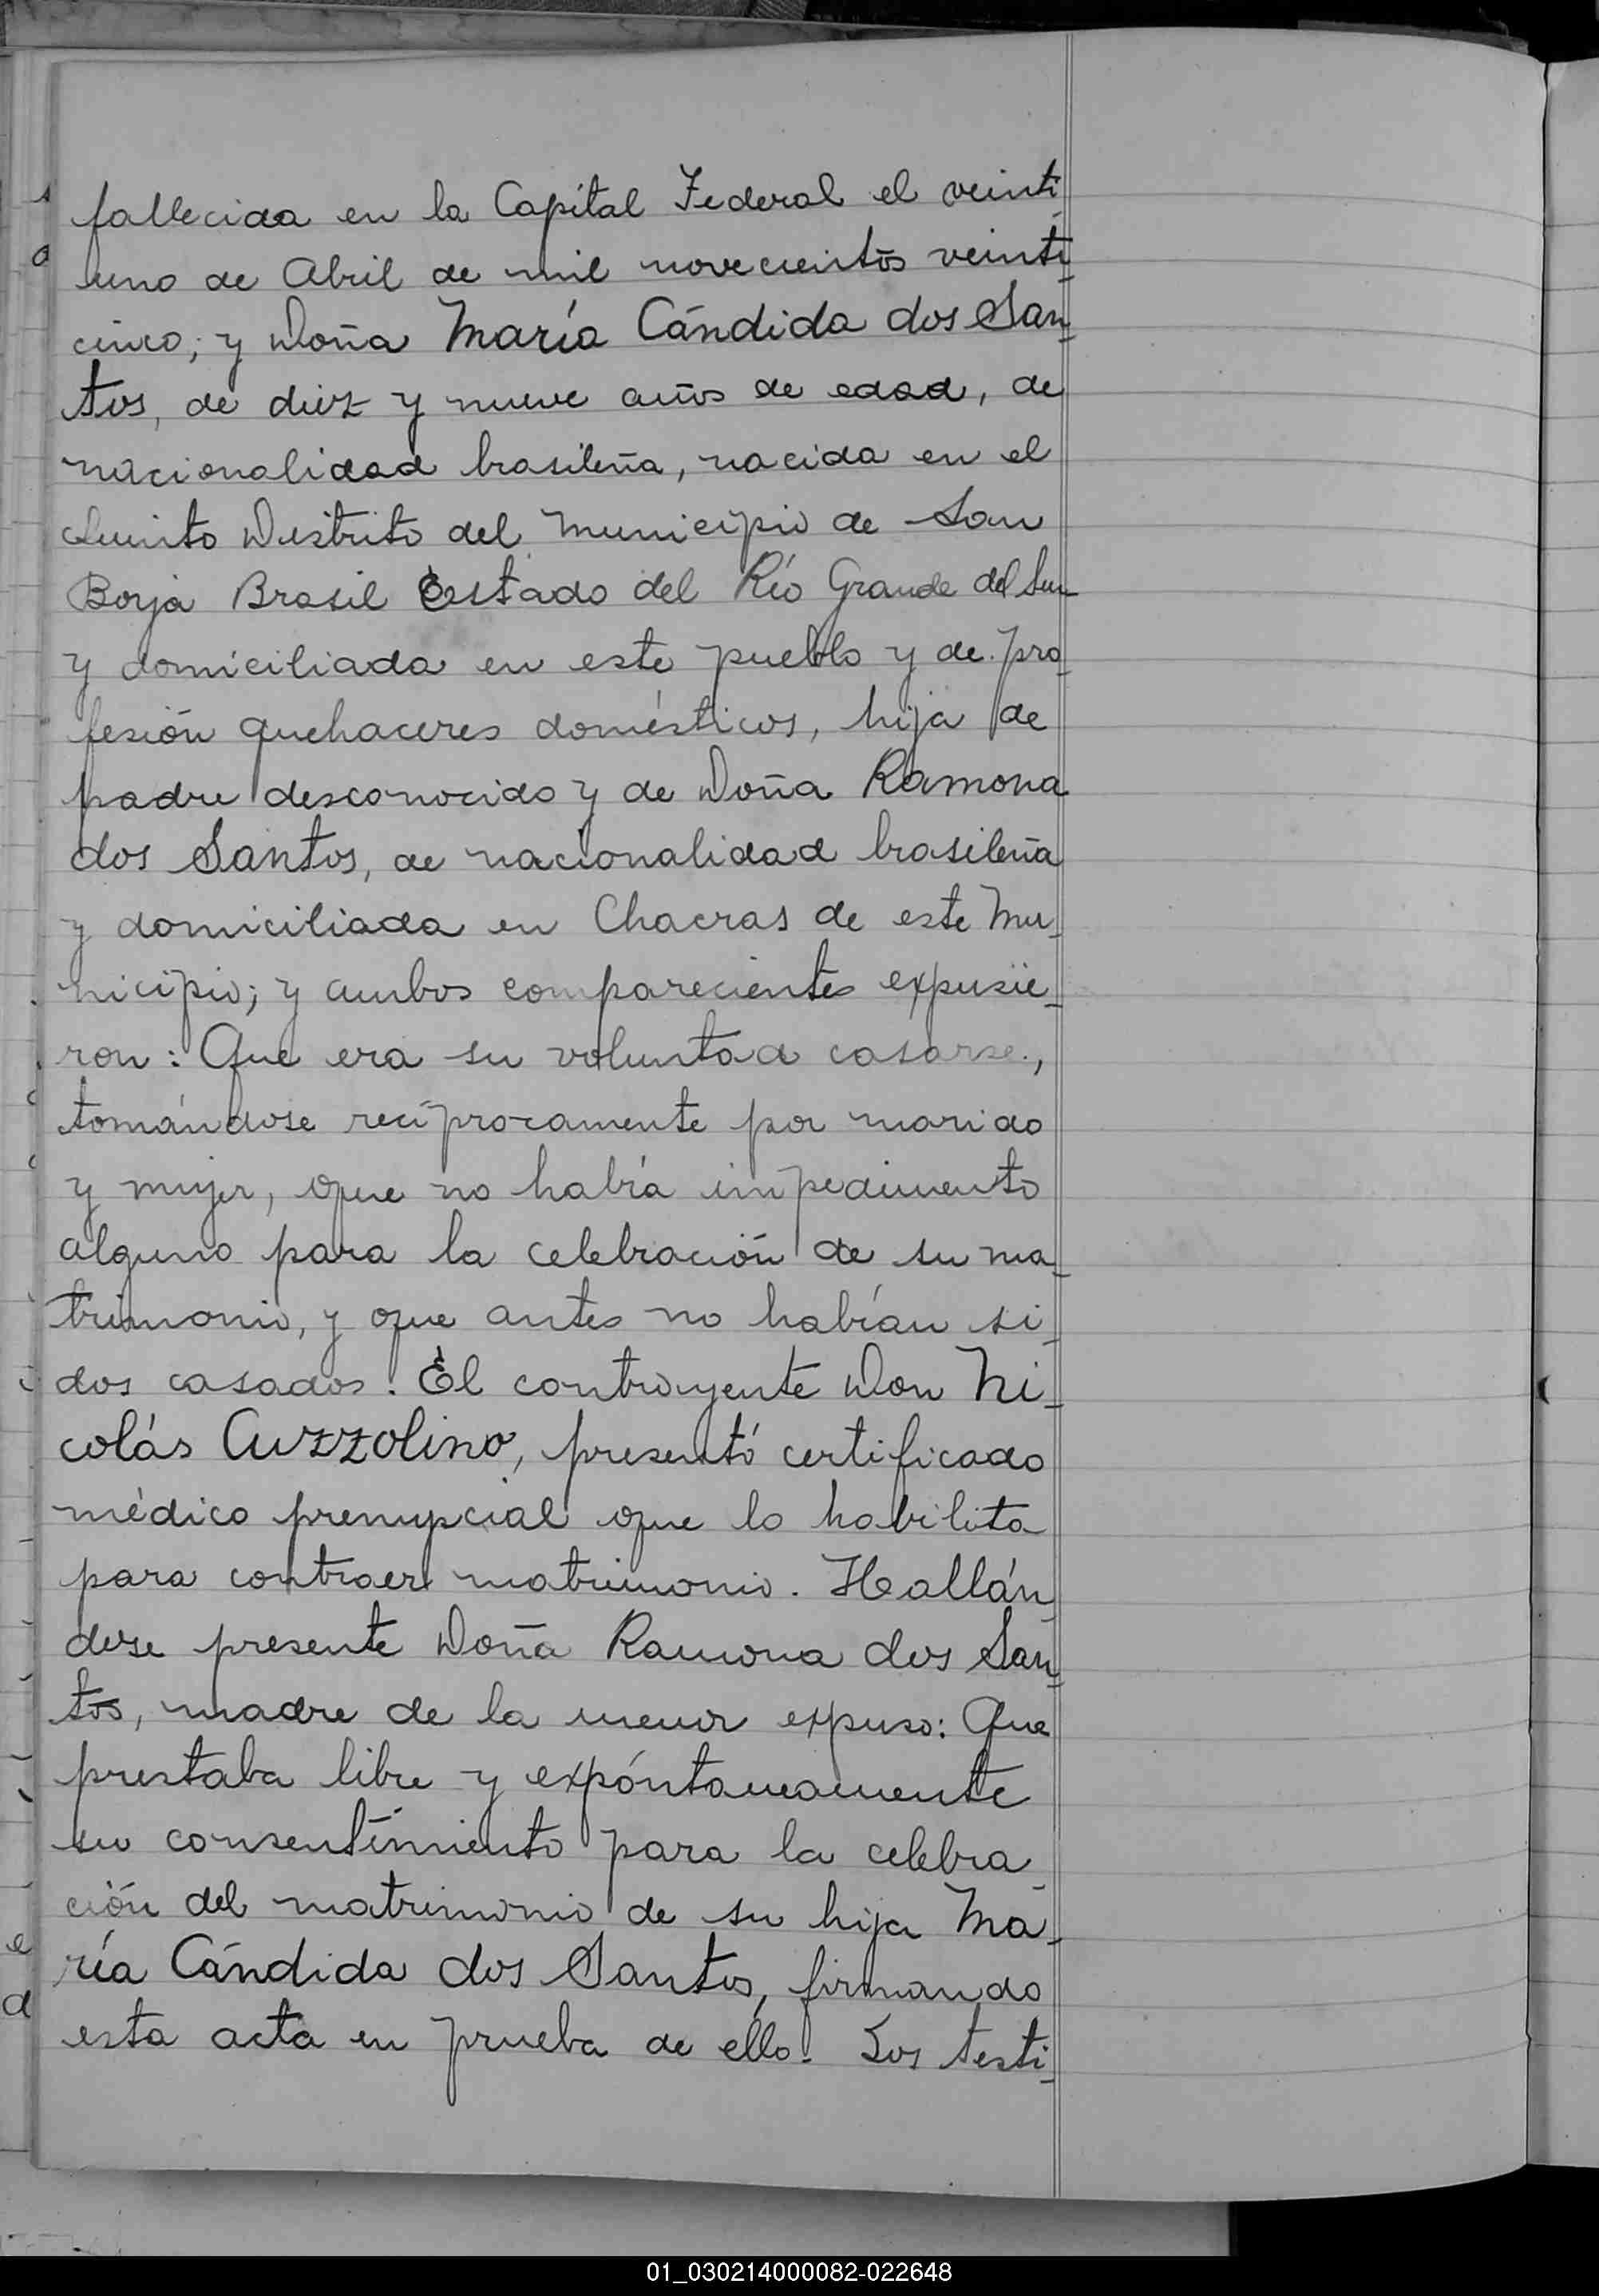 fallecida en la Capital Federal el veinti
uno de Abril de mil novecientos veinti-
cinco; y Doña María Cándida dos San-
tos, de diez y nueve años de edad, de
nacionalidad brasileña, nacida en el
Quinto Distrito del Municipio de San
Borja Brasil Estado del Río Grande del Sur
y domiciliada en este pueblo y de pro-
fesión quehaceres domésticos, hija de
padre desconocido y de Doña Ramona
dos Santos, de nacionalidad brasileña
y domiciliada en Chacras de este Mu-
nicipio; y ambos comparecientes expusie-
ron: Que era su voluntad casarse,
tomándose recíprocamente por marido
y mujer, que no había impedimento
alguno para la celebración de su ma-
trimonio, y que antes no habían si-
dos casados. El contrayente Don Ni-
colás Cuzzolino, presentó certificado
médico prenupcial que lo habilita
para contraer matrimonio. Hallán-
dose presente Doña Ramona dos San-
tos, madre de la menor expuso: Que
prestaba libre y expóntaneamente
su consentimiento para la celebra-
ción del matrimonio de su hija Ma-
ría Cándida dos Santos, firmando
esta acta en prueba de ello. Los testi-
01_030214000082-022648